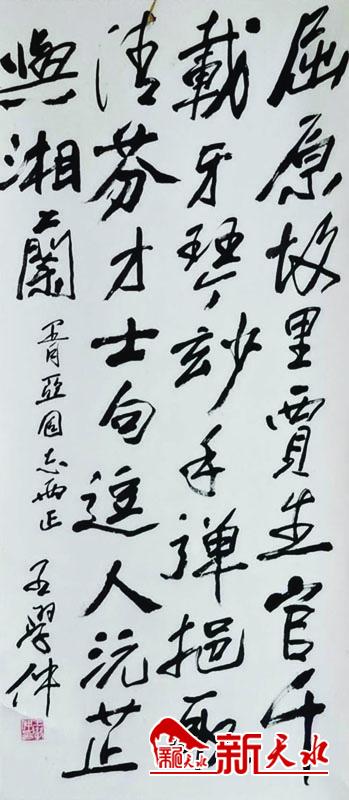 屈原故里賈生官千
載牙琴妙手弹挹取
清芬才士句人沅芷
與湘蘭
亞同志正
王學仲
新天水